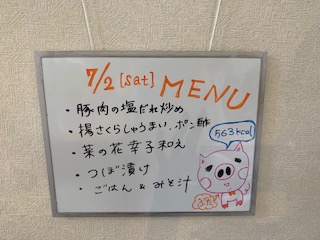 7/2 [sat] MENU
・豚肉の塩だれ炒め
・揚さくらしゅうまい、ポン酢
・菜の花辛子和え
・つぼ漬け
・ごはん & みそ汁
563kcal